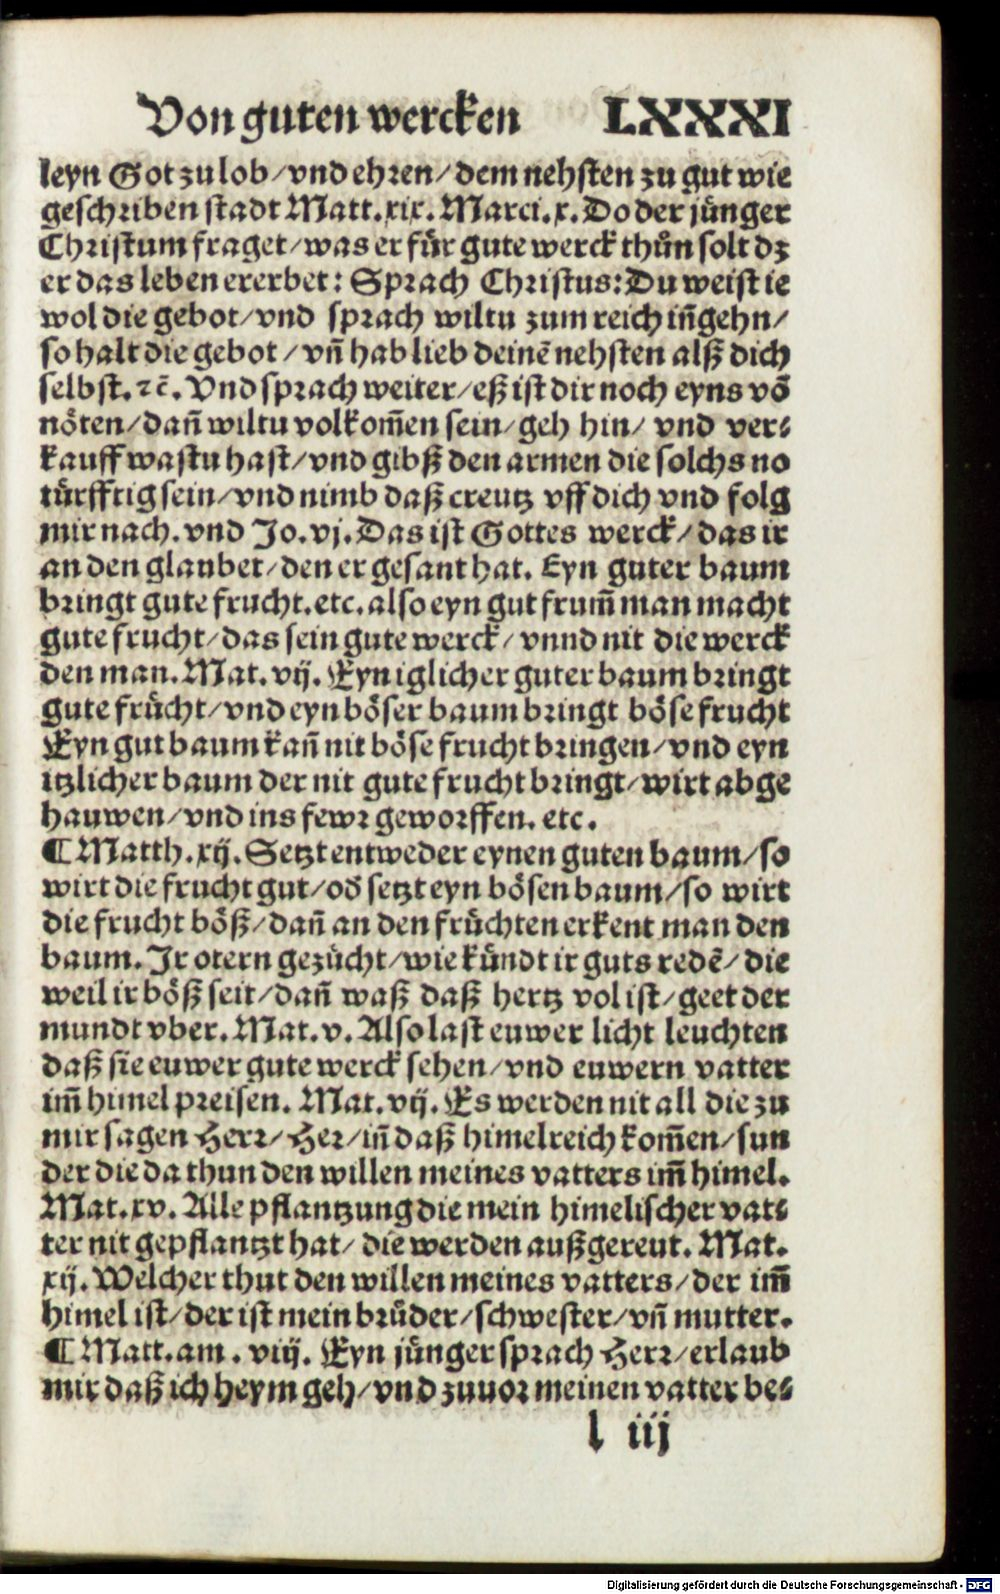 Von guten wercken LXXXI
leyn Got zu lob/vnd ehren/dem nehsten zu gut wie
geschriben stadt Matt.xix. Marci.x. Do der jünger
Christum fraget/was er für gute werck thůn solt dz
er das leben ererbet: Sprach Christus: Du weist ie
wol die gebot/vnd sprach wiltu zum reich iñgehn/
so halt die gebot/vñ hab lieb deinẽ nehsten alß dich
selbst.ꝛc̃. Vnd sprach weiter/eß ist dir noch eyns võ
nöten/dañ wiltu volkom̃en sein/geh hin/ vnd ver⸗
kauff wastu hast/vnd gibß den armen die solchs no
türfftig sein/vnd nimb daß creutz vff dich vnd folg
mir nach. vnd Jo.vj. Das ist Gottes werck/das ir
an den glaubet/den er gesant hat. Eyn guter baum
bringt gute frucht.etc. also eyn gut frum̃ man macht
gute frucht/das sein gute werck/vnnd nit die werck
den man. Mat.vij. Eyn iglicher guter baum bringt
gute frücht/vnd eyn böser baum bringt böse frucht
Eyn gut baum kañ nit böse frucht bringen/vnd eyn
itzlicher baum der nit gute frucht bringt/wirt abge
hauwen/vnd ins fewr geworffen. etc.
¶ Matth.xij. Setzt entweder eynen guten baum/so
wirt die frucht gut/od̕ setzt eyn bösen baum/so wirt
die frucht böß/dañ an den früchten erkent man den
baum. Jr otern gezücht/wie kündt ir guts redẽ/die
weil ir böß seit/dañ waß daß hertz vol ist/geet der
mundt vber. Mat.v. Also last euwer licht leuchten
daß sie euwer gute werck sehen/vnd euwern vatter
im̃ himel preisen. Mat.vij. Es werden nit all die zu
mir sagen Herr/Her/iñ daß himelreich kom̃en/sun
der die da thun den willen meines vatters im̃ himel.
Mat.xv. Alle pflantzung die mein himelischer vat⸗
ter nit gepflantzt hat/die werden außgereut. Mat.
xij. Welcher thut den willen meines vatters/der im̃
himel ist/der ist mein brůder/schwester/vñ mutter.
¶ Matt.am.viij. Eyn jünger sprach Herr/erlaub
mir daß ich heym geh/vnd zuuor meinen vatter be⸗
l iij
Digitalisierung gefördert durch die Deutsche Forschungsgemeinschaft - DFG